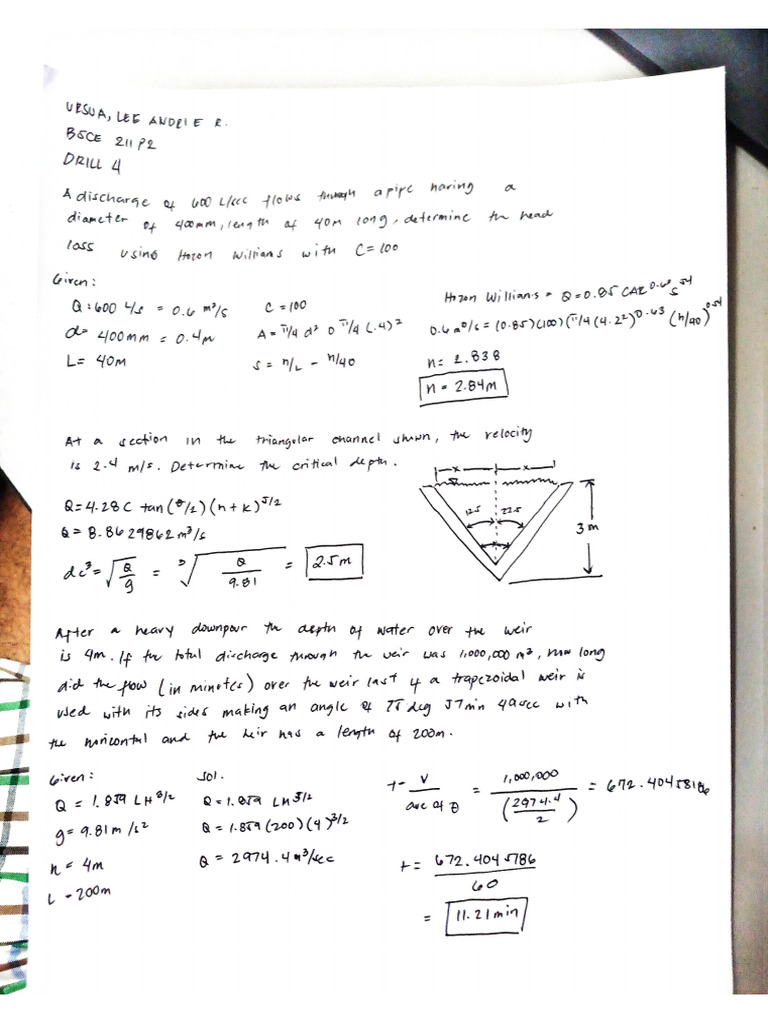 URSUA, LEE ANDRIE R.
BSCE 211 P2
DRILL 4
A discharge of 600 L/sec flows through a pipe having a
diameter of 400mm, length of 40m long, determine the head
loss using Hozon Willians with C=100
Given:
Q=600 L/s = 0.6 m³/s
C = 100
Hozon Willians = Q=0.85 CAR^0.63 S^.54
d= 400mm = 0.4m
A= π/4 d² 0 π/4 (.4)²
0.6 m³/s = (0.85)(100)(π/4 (4.2²)^0.63 (h/40)^0.54
L= 40m
s = h/L - h/40
h= 2.838
h = 2.84m
At a section in the triangular channel shown, the velocity
is 2.4 m/s. Determine the critical depth.
x x
Q=4.28C tan(θ/2)(h+k)^5/2
22.5 22.5
Q= 8.8629862 m³/s
3m
dc³= √Q/g = ³√Q/9.81 = 2.5m
After a heavy downpour the depth of water over the weir
is 4m. If the total discharge through the weir was 1,000,000 m³, how long
did the flow (in minutes) over the weir last if a trapezoidal weir is
used with its sides making an angle of 75 deg 57min 49sec with
the horizontal and the weir has a length of 200m.
Given:
sol.
Q = 1.859 LH^3/2
Q=1.859 LH^3/2
t- V/ave of Q = 1,000,000/(2974.4/2) = 672.4045786
g= 9.81m/s²
Q= 1.859(200)(4)^3/2
h = 4m
Q = 2974.4m³/sec
t = 672.4045786/60
L -200m
= 11.21min